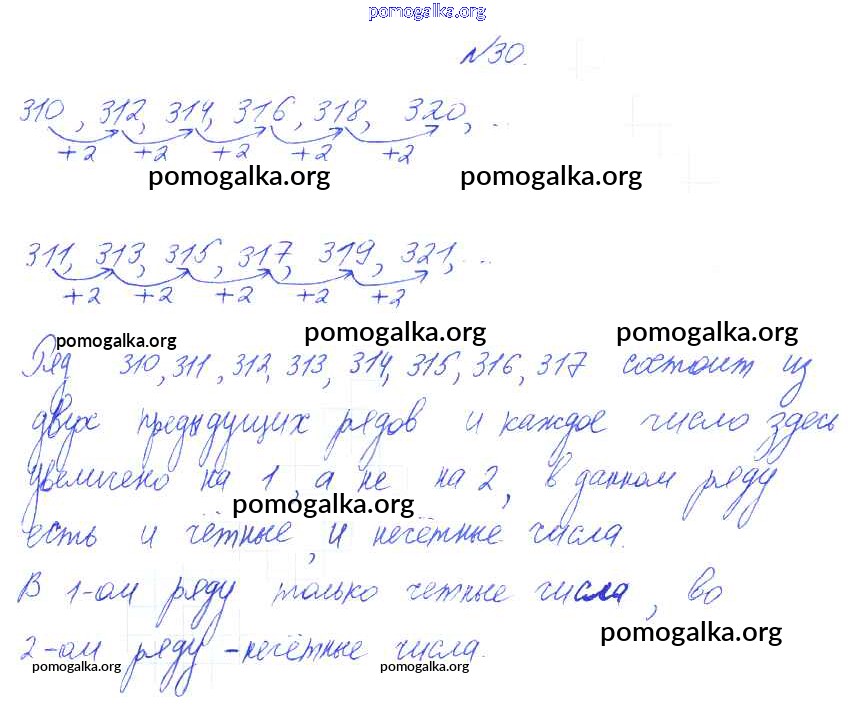 pomogalka.org
№30.
310, 312, 314, 316, 318, 320, ...
+2 +2 +2 +2 +2
pomogalka.org pomogalka.org
311, 313, 315, 317, 319, 321, ...
+2 +2 +2 +2 +2
pomogalka.org pomogalka.org pomogalka.org
Ряд 310, 311, 312, 313, 314, 315, 316, 317 состоит из
двух предыдущих рядов и каждое число здесь
увеличено на 1, а не на 2, в данном ряду
pomogalka.org
есть и чётные, и нечётные числа.
В 1-ом ряду только четные числа, во
pomogalka.org
2-ом ряду - нечётные числа.
pomogalka.org pomogalka.org